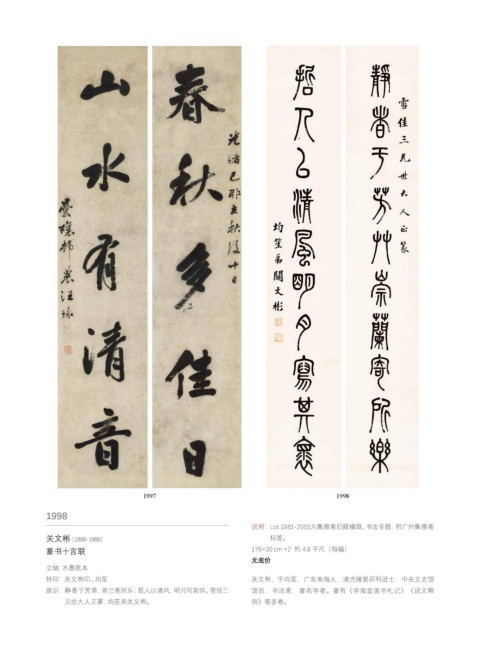 春秋多佳日
光緒己卯立秋後十日
山水有清音
靜者于芳艸崇蘭寄所樂
雪佳三兄世大人正篆
哲人以清風明月寫其褱
均笙弟關文彬
1997
1998
1998
关文彬
篆书十言联
立轴 水墨纸本
钤印 关文彬印、均笙
款识 静香于芳草,崇兰寄所乐;哲人以清风,明月写其怀。雪佳三
兄世大人正篆,均笙弟关文彬。
说明 Lot 1981-2005为集雅斋旧藏楹联、书法专题,附广州集雅斋
标签。
176×30 cm ×2 约 4.8 平尺(每幅)
无底价
关文彬,字均笙,广东南海人,清光绪癸卯科进士,中央文史馆
馆员,书法家、著名学者。著有《学海堂读书札记》《说文释
例》等多卷。